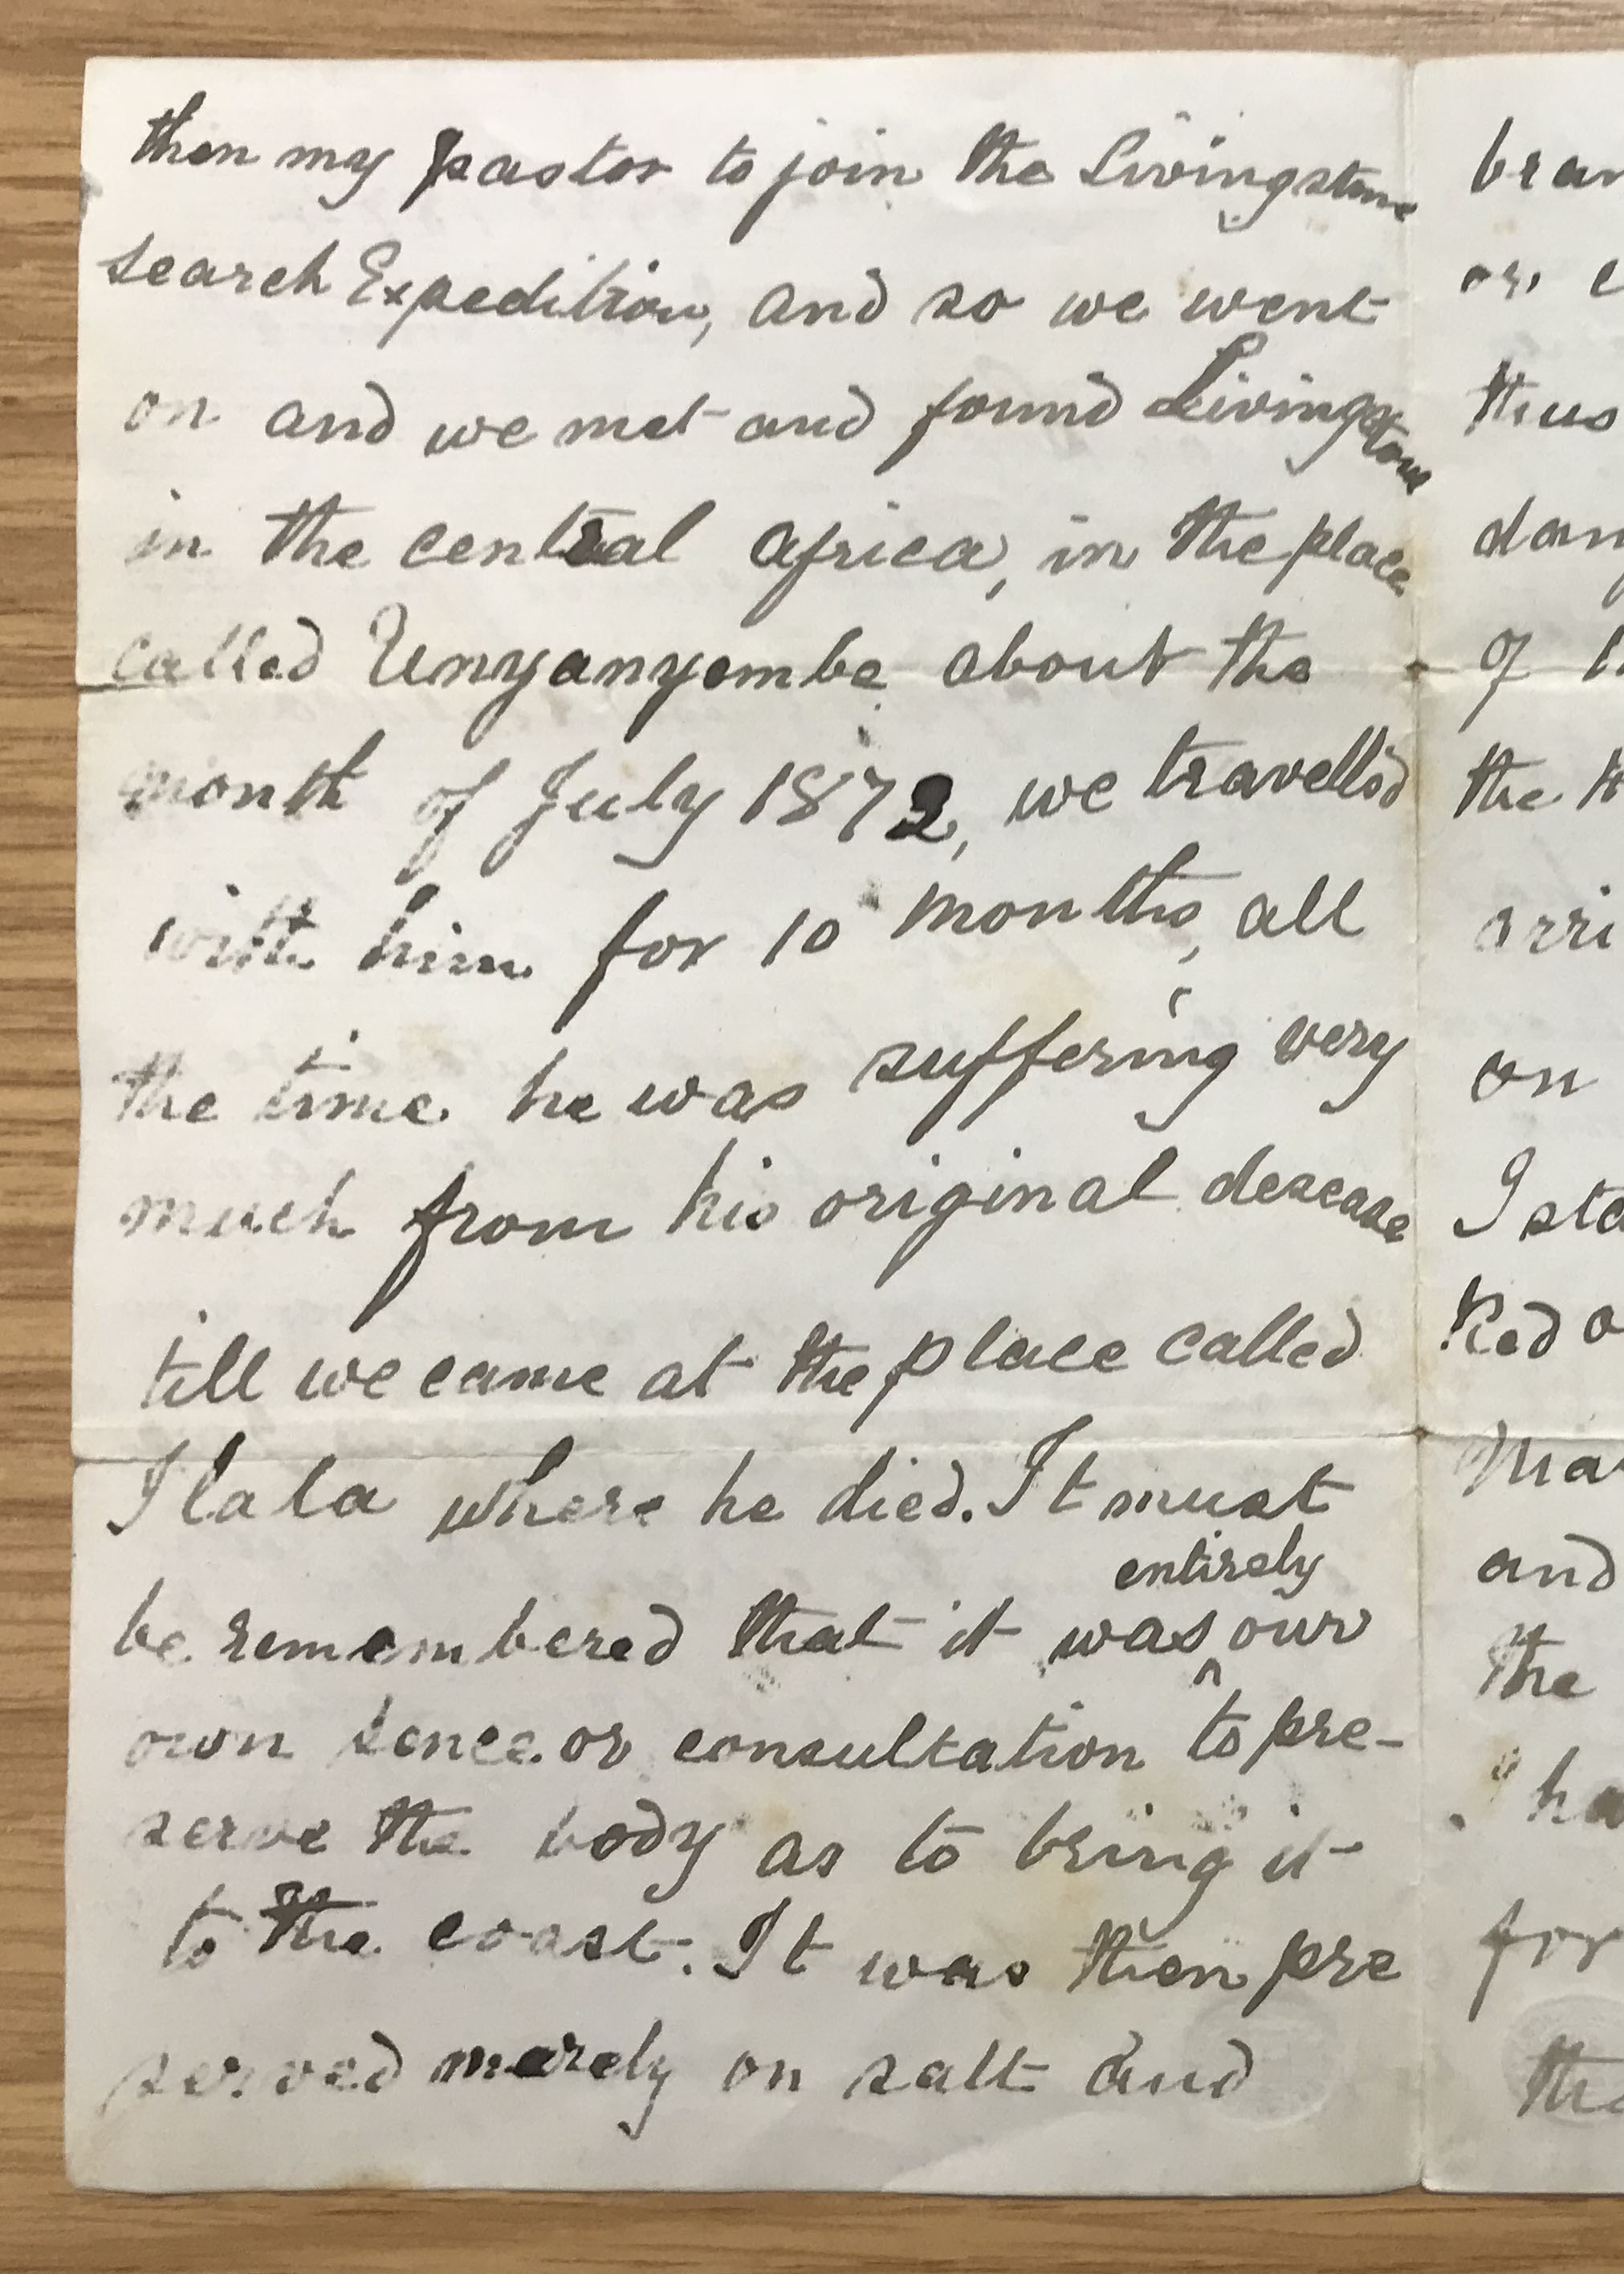 then my pastor to join the Livingstone
search Expedition, and so we went
on and we met and found Livingstone
in the central africa, in the place
called Unyanyembe about the
month of July 1872, we travelled
with him for 10 months, all
the time he was suffering very
much from his original desease
till we came at the place called
Ilala where he died. It must
entirely
be remembered that it was ^ our
own sence or consultation to pre-
serve the body as to bring it
to the coast. It was then pre
served merely on salt and
bran
or,
thus
dan
of
the
arri
on
I sta
ked o
Mar
and
The
ha
for
the